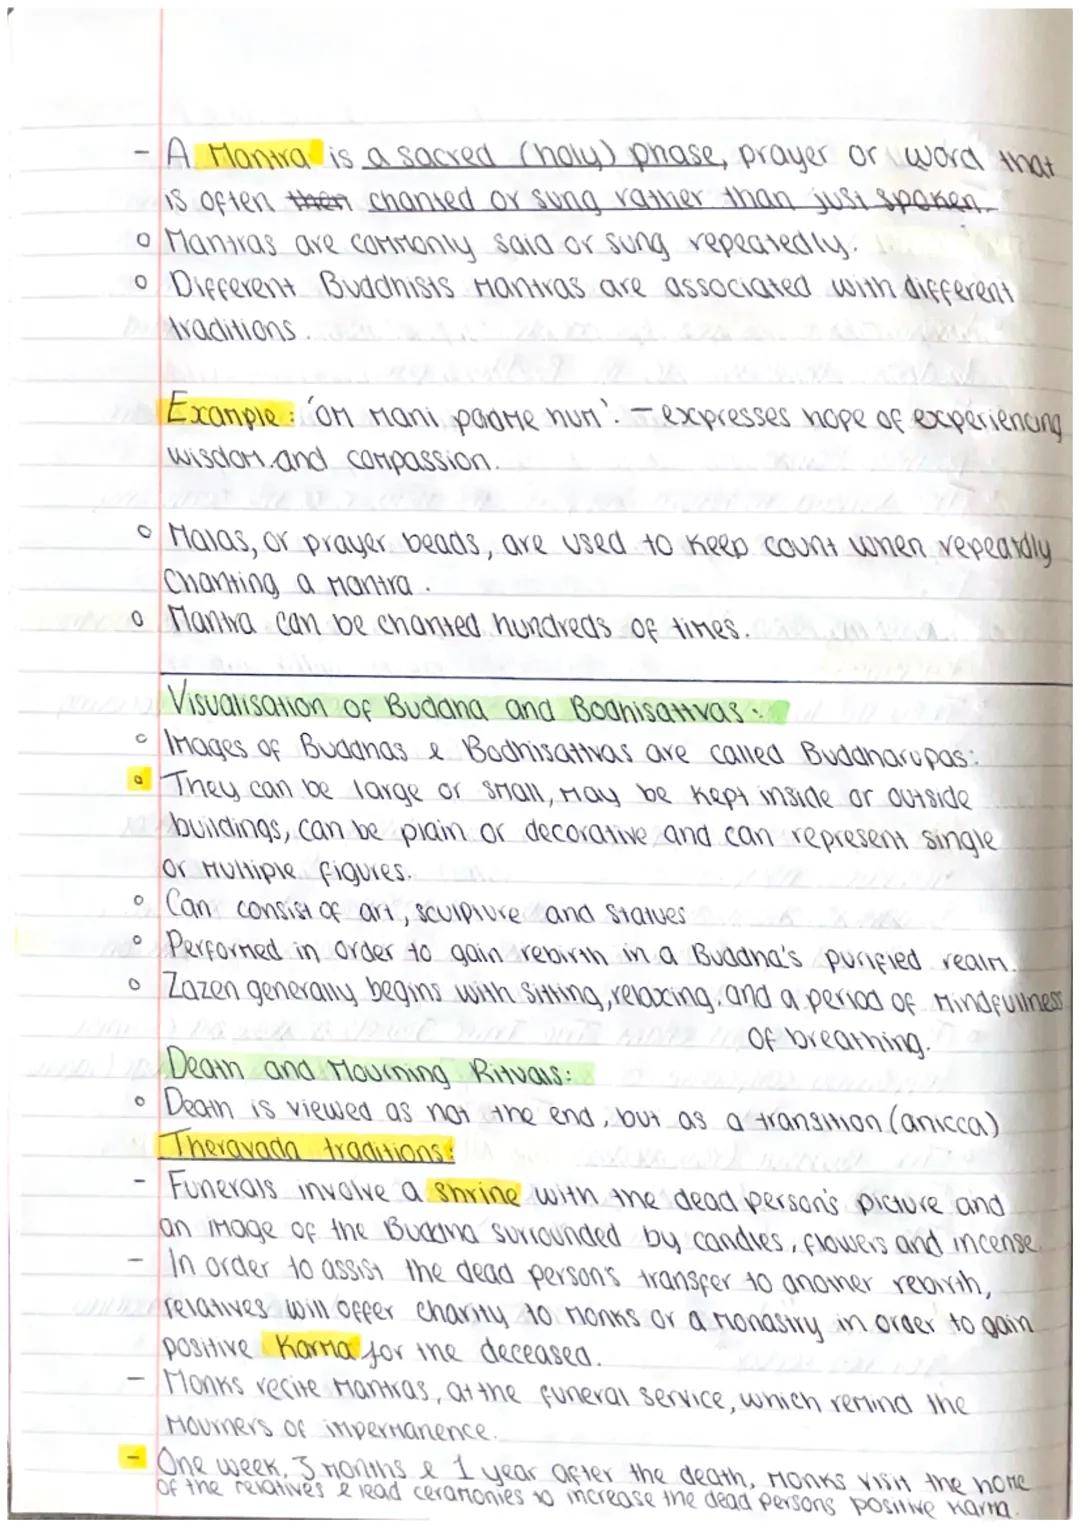 - A Mantra is a sacred (holy) phase, prayer or word that
is often then chanted or sung rather than just spoken.
o Mantras are commonly said or sung repeatedly.
o Different Buddhists Mantras are associated with different
traditions.
Example: 'om mani padme hum'. - expresses hope of experiencing
wisdom and compassion.
o Malas, or prayer beads, are used to keep count when repeatdly
chanting a mantra.
o Mantra can be chanted hundreds of times.
Visualisation of Buddha and Bodhisattvas:
o Images of Buddhas & Bodhisattvas are called Buddharupas:
o They can be large or small, may be kept inside or outside
buildings, can be plain or decorative and can represent single
or multiple figures.
o Can consist of art, sculpture and statues
o Performed in order to gain rebirth in a Buddha's purified realm.
o Zazen generally begins with sitting, relaxing, and a period of mindfullness
of breathing.
Death and Mourning Rituals:
o Death is viewed as not the end, but as a transition (anicca)
Theravada traditions:
- Funerals involve a shrine with the dead person's picture and
an image of the Buddha surrounded by candles, flowers and incense.
- In order to assist the dead person's transfer to another rebirth,
relatives will offer charity to monks or a monastry in order to gain
positive Karma for the deceased.
- Monks recite mantras, at the funeral service, which remind the
mourners of impermanence.
- One week, 3 months & 1 year after the death, monks visit the home
of the relatives & lead ceramonies to increase the dead persons positive Karma.